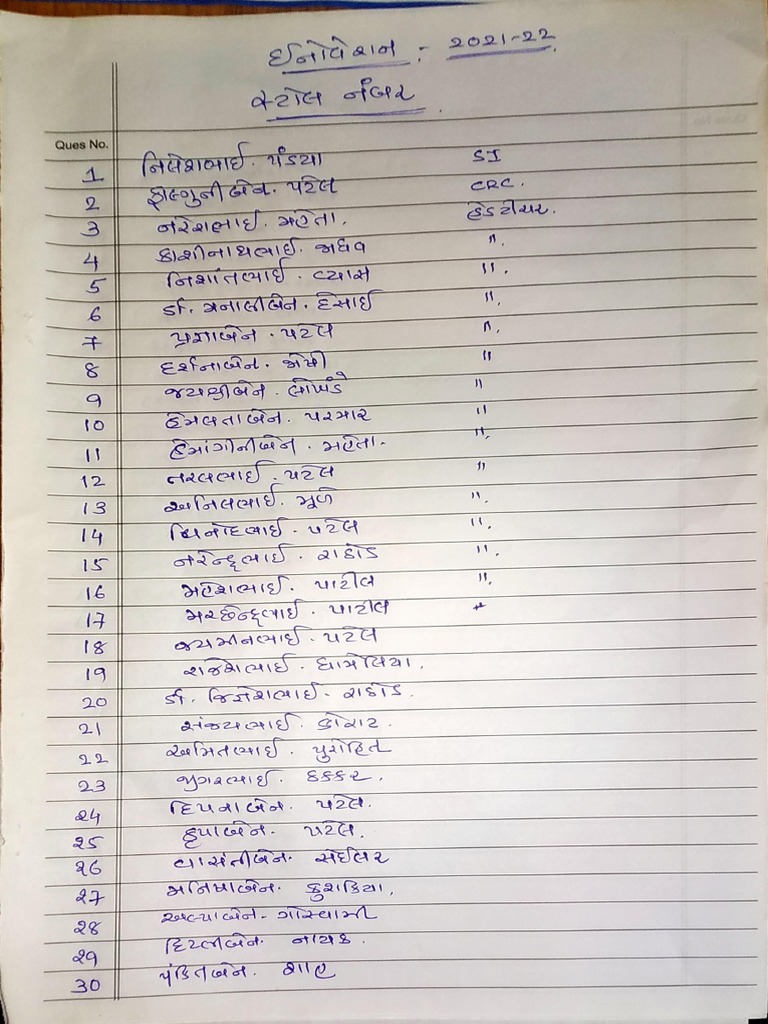 ઈનોવેશન :- 2021-22
સ્ટોલ નંબર
Ques No.
1 નિલેશભાઈ. પંડયા SI
2 ફાલ્ગુનીબેન. પટેલ CRC.
3 નરેશભાઈ. મહેતા. હેડટીચર.
4 કાશીનાથભાઈ. જાધવ ".
5 નિશાંતભાઈ. વ્યાસ ".
6 ડૉ. મનાલીબેન. દેસાઈ ".
7 પ્રજ્ઞાબેન. પટેલ ".
8 દર્શનાબેન. જોષી "
9 જયશ્રીબેન. લોખંડે "
10 હેમલતાબેન. પરમાર "
11 હેમાંગીનીબેન. મહેતા. ".
12 તરલભાઈ. પટેલ "
13 અનિલભાઈ. મૂળે ".
14 વિનોદભાઈ. પટેલ ".
15 નરેન્દ્રભાઈ. રાઠોડ ".
16 મહેશભાઈ. પાટીલ ".
17 મચ્છેન્દ્રભાઈ. પાટીલ "
18 જયમીનભાઈ. પટેલ
19 રાજેશભાઈ. ધામેલિયા.
20 ડૉ. જિજ્ઞેશભાઈ. રાઠોડ.
21 સંજયભાઈ. કોરાટ.
22 અમિતભાઈ. પુરોહિત
23 જીગરભાઈ. ઠક્કર.
24 દિપનાબેન. પટેલ.
25 કૃપાબેન. પટેલ.
26 વાસંતીબેન. સેઈલર
27 મનિષાબેન. કુશકિયા.
28 અલ્પાબેન- ગોસ્વામી
29 હિટલીબેન. નાયક.
30 પંકિતબેન. શાહ